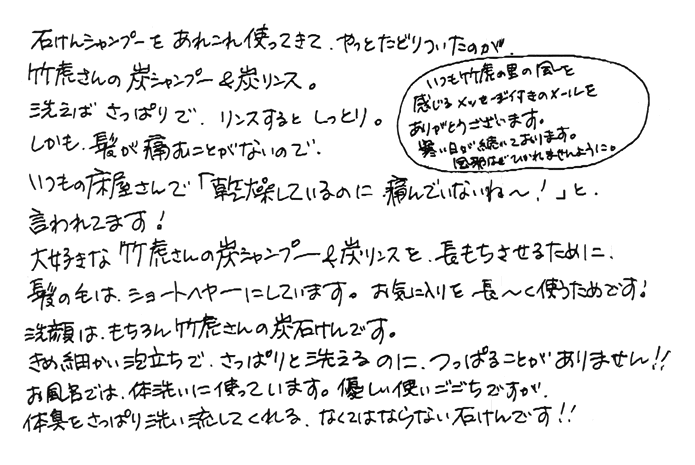 石けんシャンプーを あれこれ使ってきて、やっとたどりついたのが、
竹虎さんの炭シャンプー&炭リンス。
洗えば さっぱりで、リンスすると しっとり。
しかも、髪が痛むことがないので、
いつもの床屋さんで「乾燥しているのに、痛んでいないね〜!」と、
言われてます!
大好きな 竹虎さんの炭シャンプー&炭リンスを、長もちさせるために、
髪の毛は、ショートヘヤーにしています。お気に入りを 長〜く使うためです!
洗顔は、もちろん竹虎さんの炭石けんです。
きめ細かい泡立ちで、さっぱりと洗えるのに、つっぱることがありません!!
お風呂では、体洗いに使っています。優しい使いごこちですが、
体臭をさっぱり洗い流してくれる、なくてはならない石けんです!!
いつも竹虎の里の風を
感じるメッセージ付きのメールを
ありがとうございます。
寒い日が続いております。
風邪などひかれませんように。